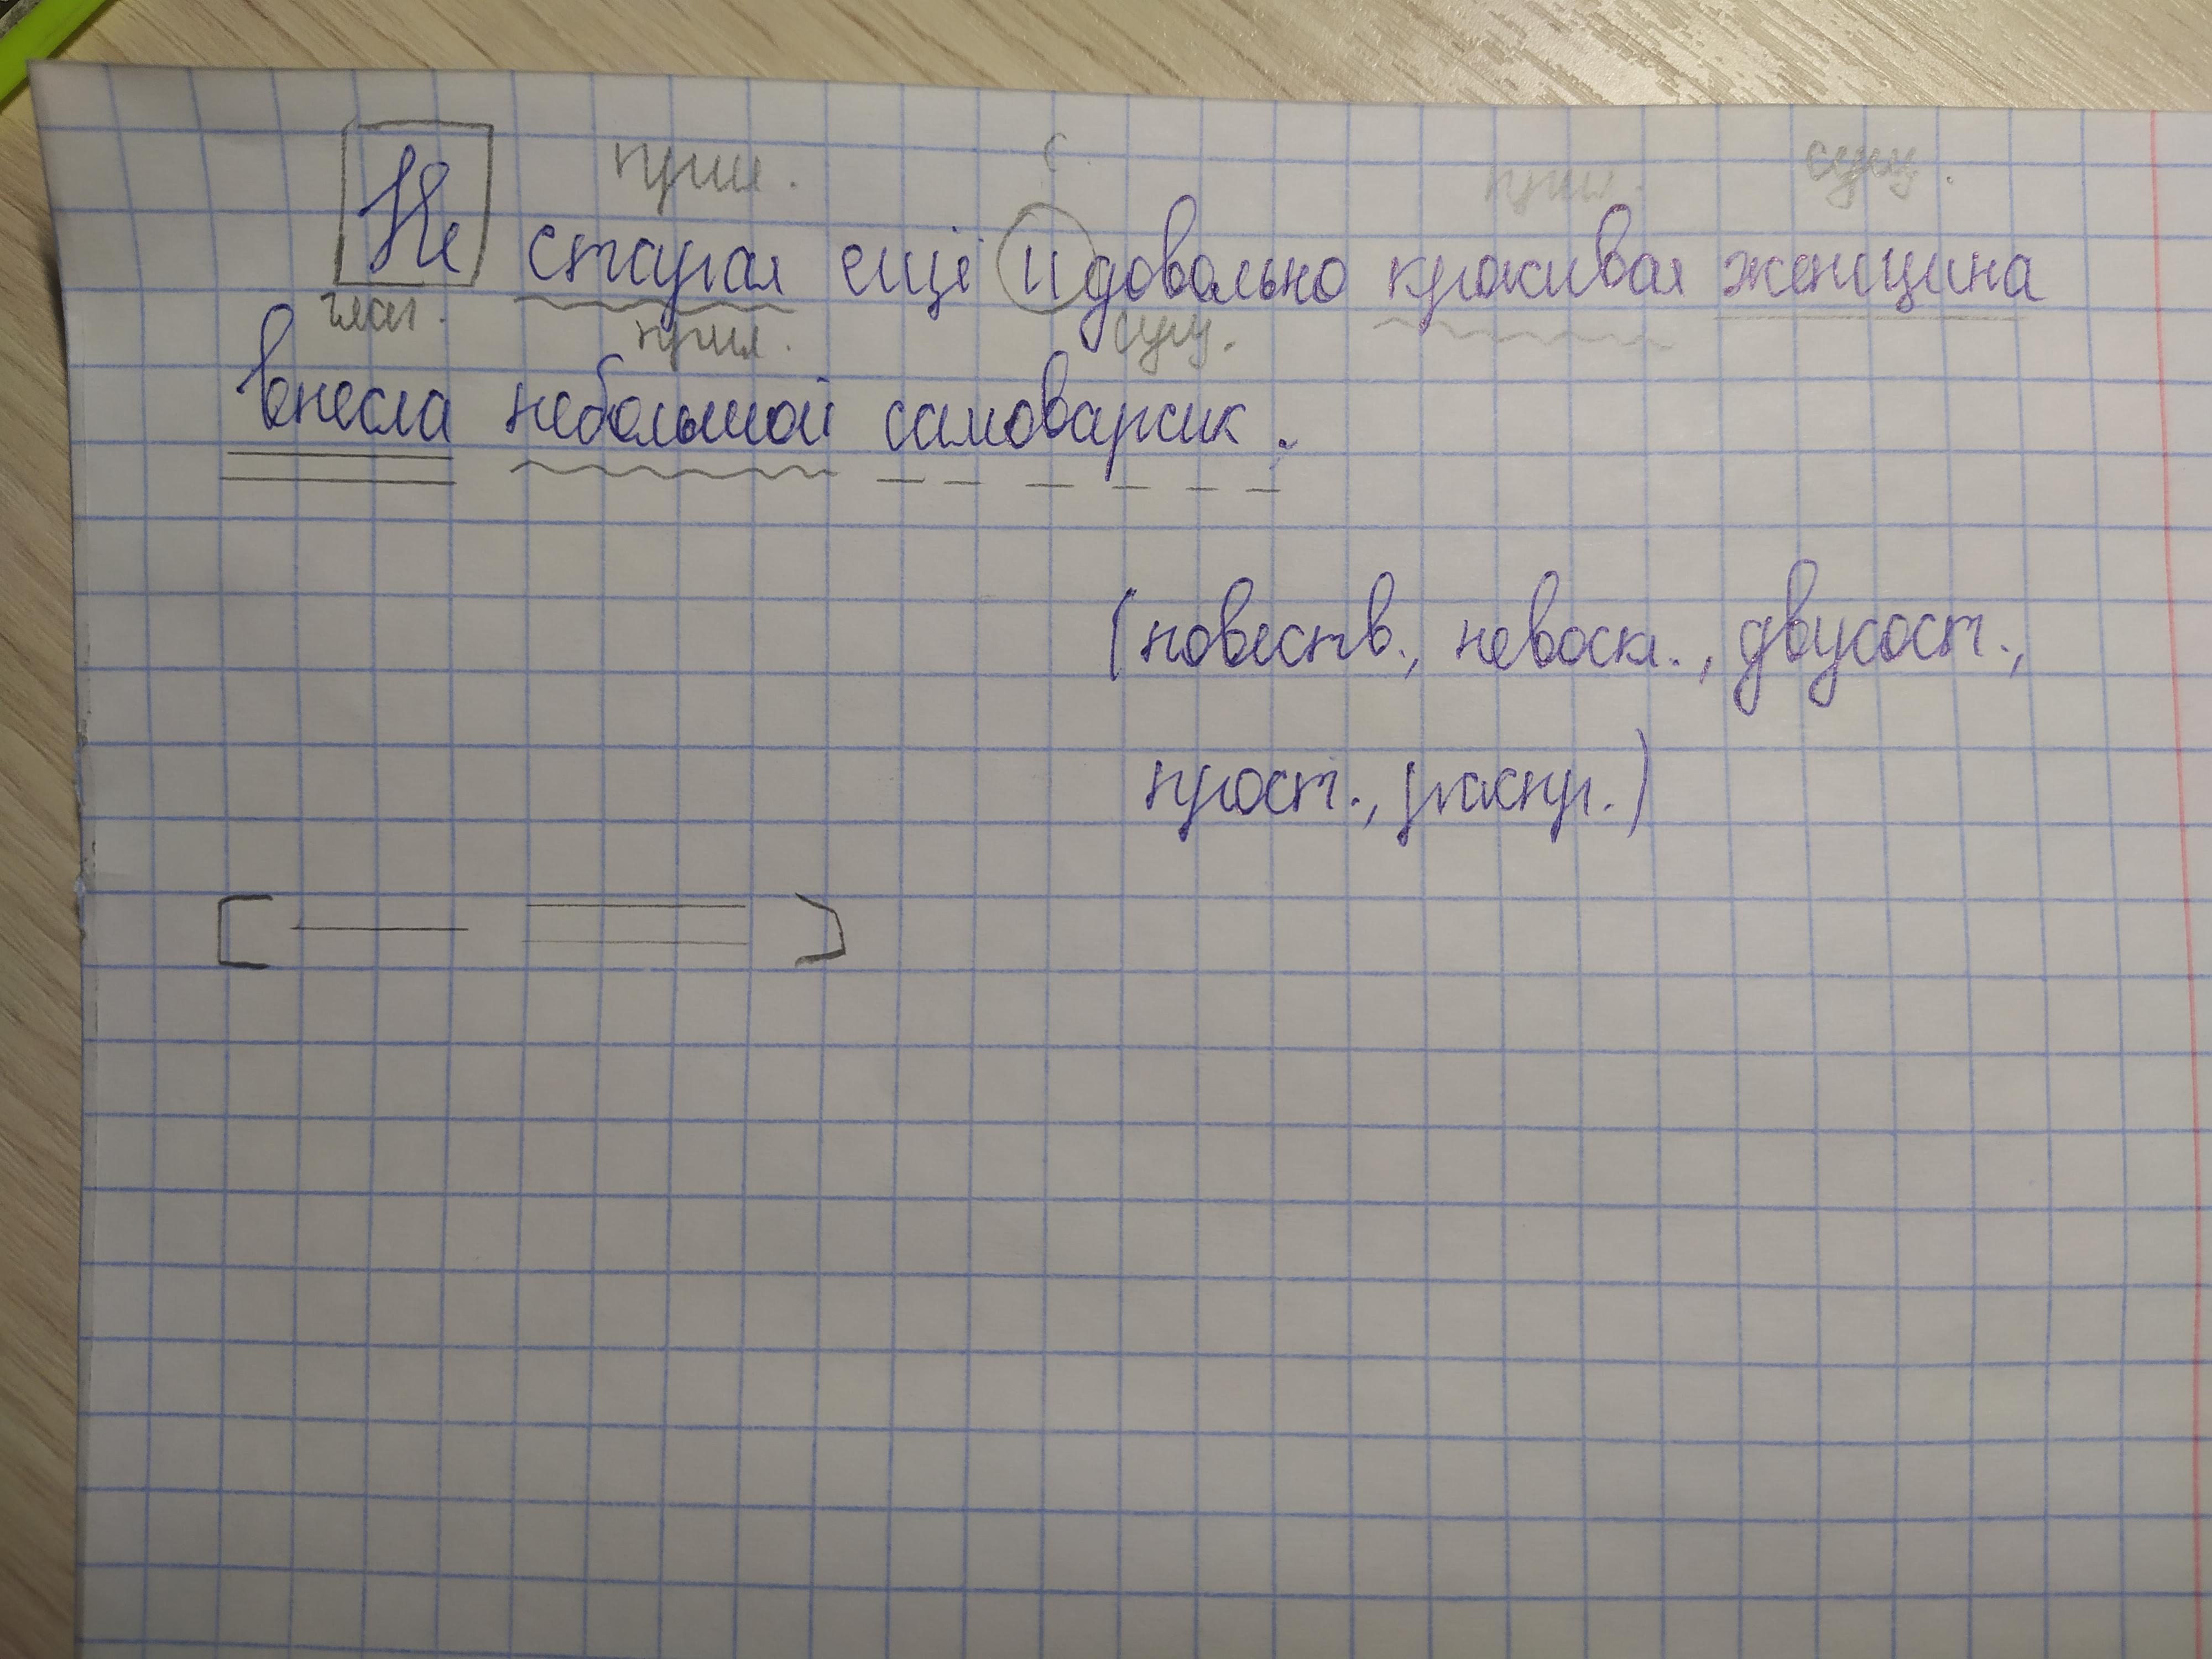 прил. с прил. сущ.
Не старая ещё и довольно красивая женщина
глаг. прил. сущ.
внесла небольшой самоварсик.
(повеств., невоскл., двусост.,
прост., распр.)